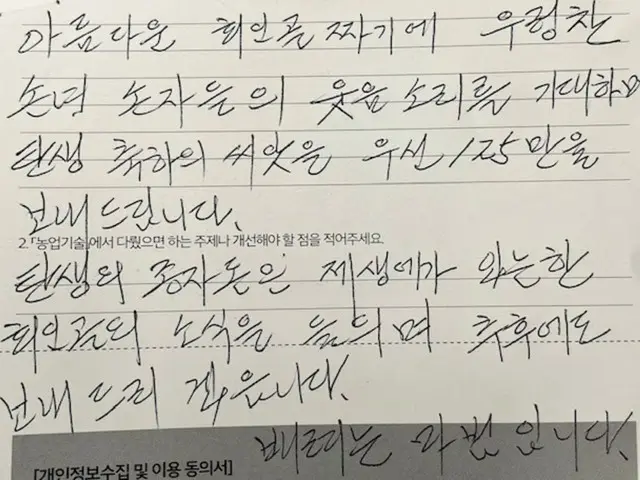 아름다운 회인골짜기에 우렁찬
손녀 손자들의 웃음소리를 기대하며
탄생 축하의 씨앗을 우선 125만을
보내드립니다.
2. 「농업기술」에서 다뤘으면 하는 주제나 개선해야 할 점을 적어주세요.
탄생의 종자돈은 제생에가 완는한
회인골의 소식을 들으며 추후에도
보내 드리 겠읍니다.
배려는 마법 입니다.
[개인정보수집 및 이용 동의서]